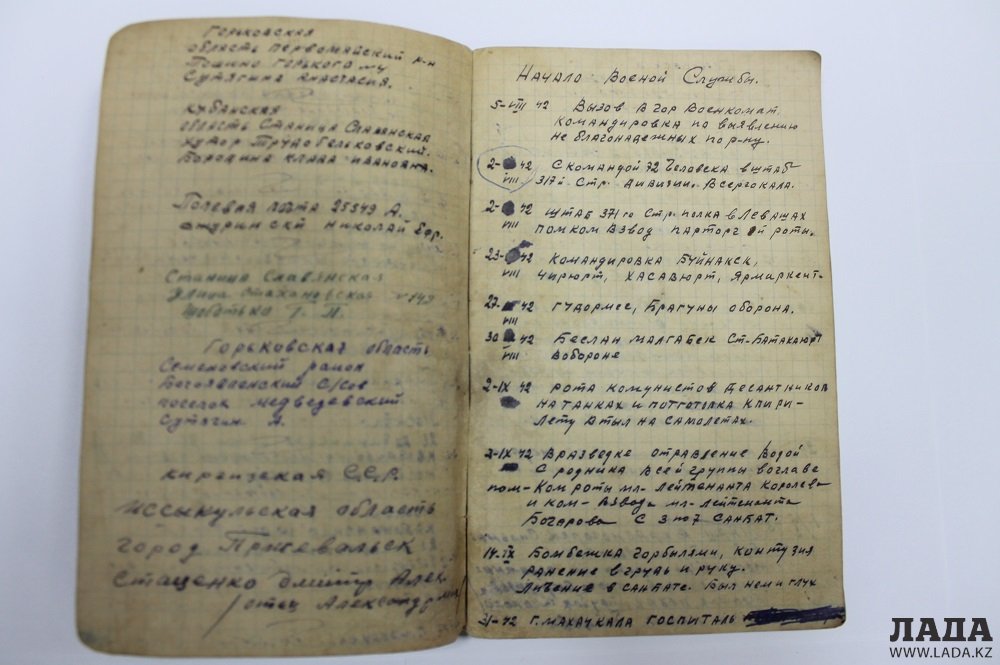 Горьковская
область первомайский р-н
Сутягина Анастасия.
Кубанская
область Станица Славянская
хутор Трудобельковский.
Бородина Клава Ивановна.
Полевая почта 25349 А.
Николай
Станица Славянская
улица Стахановская №149
Горьковская область
Семеновский район
с/сов
поселок медведевский
Сутягин А.
Киргизская С.С.Р.
Иссыкульская область
город Пржевальск
Стаценко Дмитр Алек
/отец Александр
Начало Военой Службы.
5-VIII 42 Вызов В гор Военкомат.
Командировка по выявлению
не благонадежных по р-ну.
2- 42 С командой 72 Человека в штаб
VIII 317й Стр. Дивизии. В Сергокала.
2- 42 Штаб 371го Стр. полка в Левашах
VIII помком Взвод парторг й роты.
23- 42 Командировка Буйнакск,
VIII Чирюрт, Хасавюрт, Ярмиркент-
27- 42 Гудормес, Брагуны оборона.
VIII
30 42 Беслан Малгабек Ст-Батакаюрт
VIII Вобороне
2-IX 42 рота комунистов Десантников
на танках и потготовка к
лету в тыл на самолетах.
2-IX 42 В разведке отравление Водой
с родника Всей группы воглаве
пом- Ком роты мл-лейтенанта Королева
и ком- Взвода мл-лейтенанта
Богарова с 3 по 7 Санбат.
14-IX Бомбежка горбилями, контузия
ранение в грудь и руку.
в Санбате. Был нем и глух
31- 42 г. Махачкала госпиталь
ЛАДА
WWW.LADA.KZ